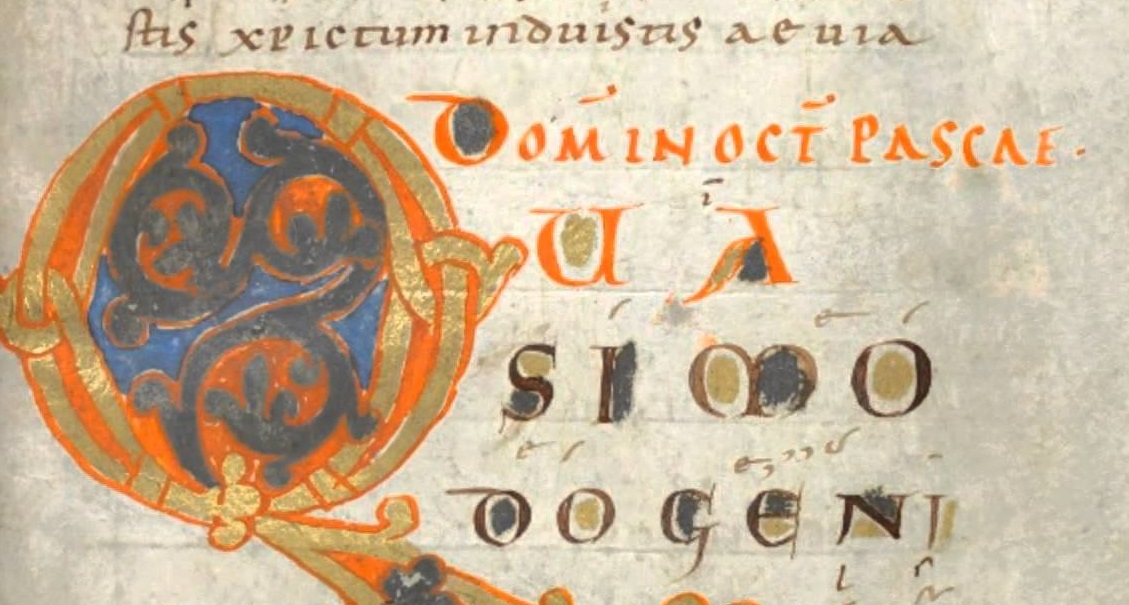 stis xpictum induistis aeuia
Dom̄ in oct̄ pascae·
QUA
SIMO
DO GENI